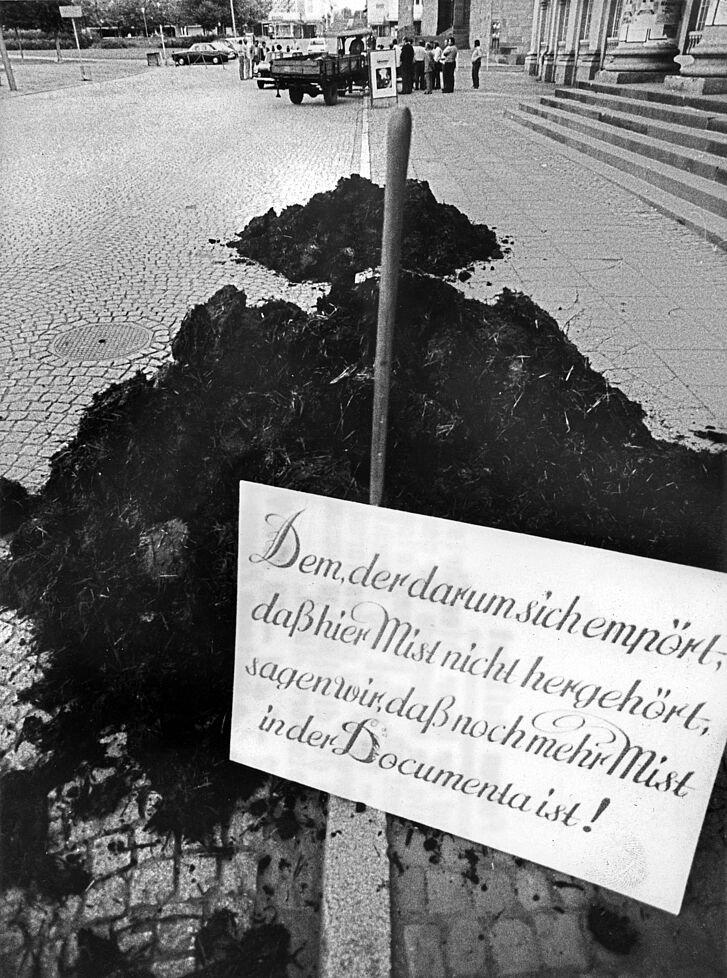 Dem, der darum sich empört,
daß hier Mist nicht hergehört,
sagen wir, daß noch mehr Mist
in der Documenta ist!